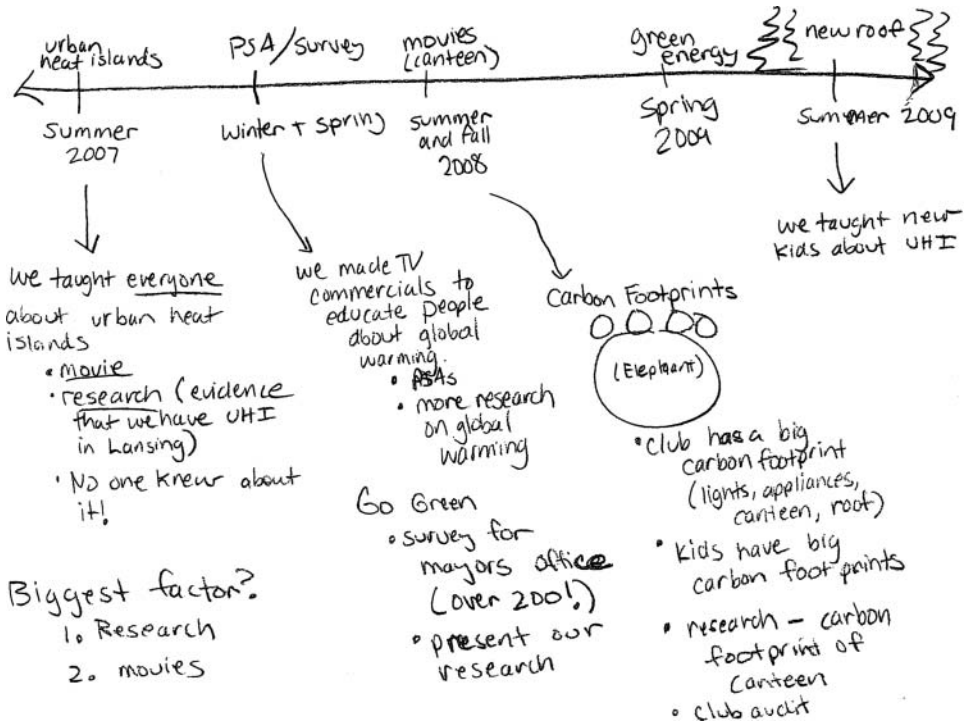 urban
heat islands
PSA/survey
movies
(canteen)
green
energy
new roof
summer
2007
winter + spring
summer
and fall
2008
spring
2009
summer 2009
we taught everyone
about urban heat
islands
• movie
• research (evidence
that we have UHI
in Lansing)
• No one knew about
it!
Biggest factor?
1. Research
2. movies
we made TV
commercials to
educate people
about global
warming.
• PSAs
• more research
on global
warming
Go Green
• survey for
mayors office
(over 200!)
• present our
research
Carbon Footprints
(Elephant)
• club has a big
carbon footprint
(lights, appliances,
canteen, roof)
• kids have big
carbon foot prints
• research - carbon
footprint of
canteen
• club audit
we taught new
kids about UHI